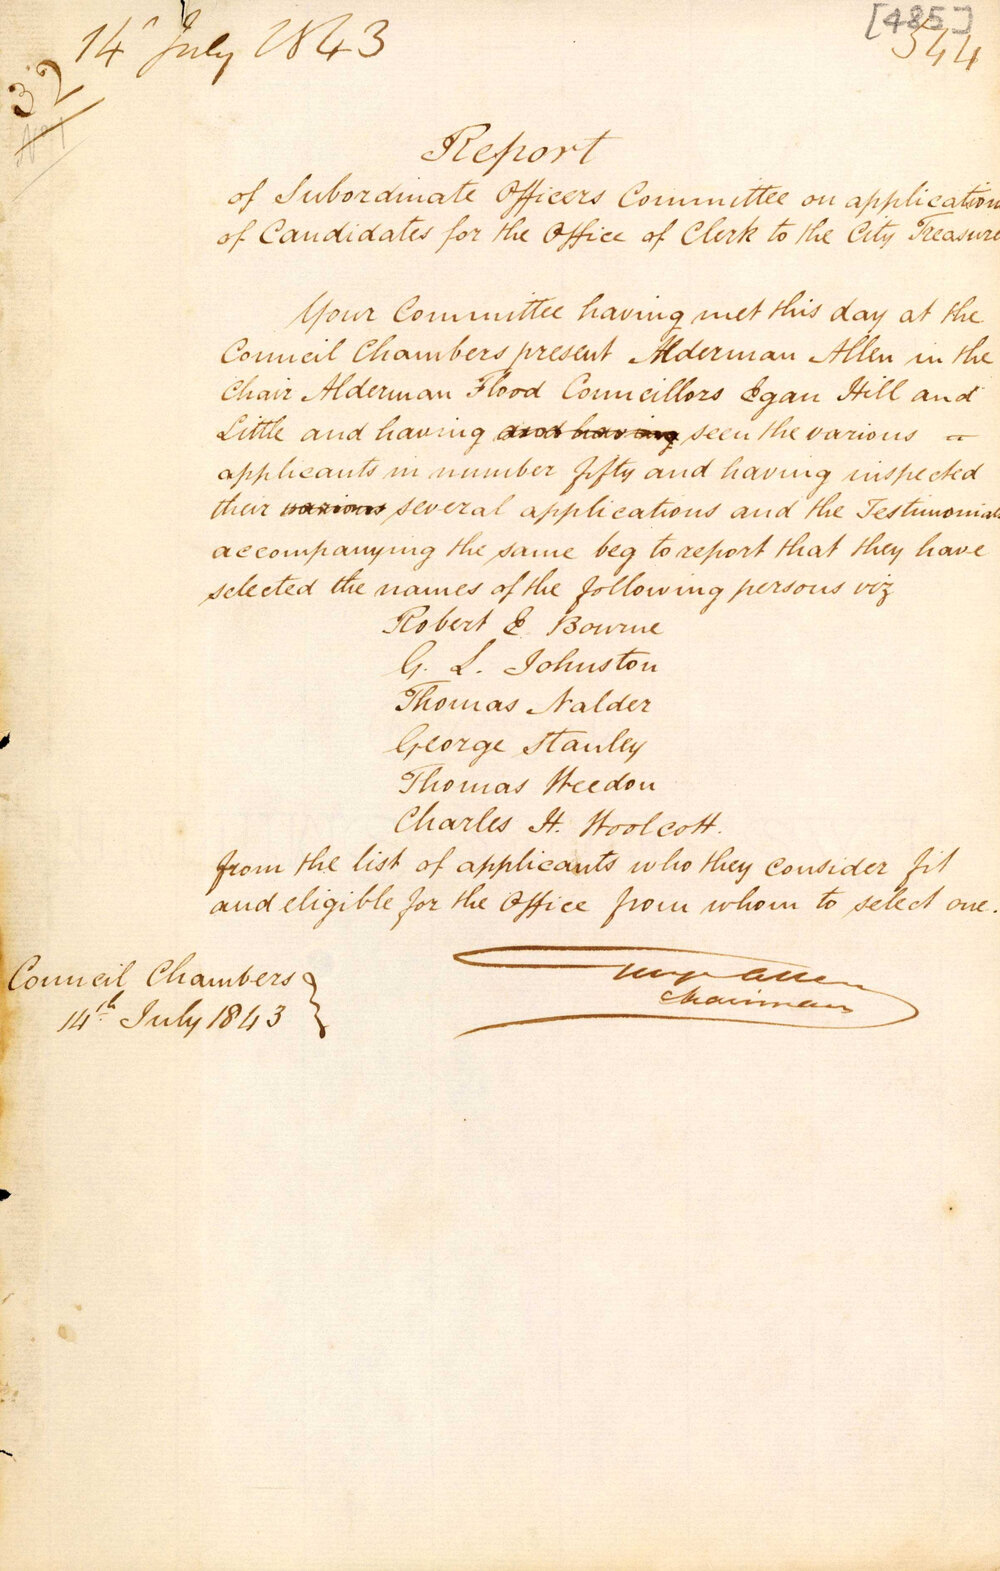 14 July 1843
[485]
544
32
No 1
Report
of Subordinate Officers Committee on application
of Candidates for the Office of Clerk to the City Treasure
Your Committee having met this day at the
Council Chambers present Alderman Allen in the
Chair Alderman Flood Councillors Egan Hill and
Little and having and having seen the various –
applicants in number fifty and having inspected
their various several applications and the Testimonials
accompanying the same beg to report that they have
selected the names of the following persons viz
Robert E Bourne
G. L. Johnston
Thomas Nalder
George Stanley
Thomas Weedon
Charles H. Woolcott.
from the list of applicants who they consider fit
and eligible for the Office from whom to select one.
Council Chambers
14th July 1843
Allen
Chairman